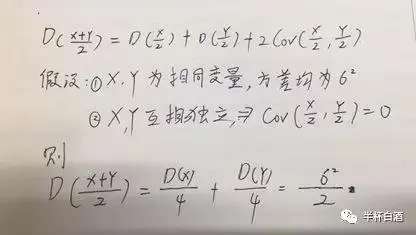 D(\frac{X+Y}{2}) = D(\frac{X}{2}) + D(\frac{Y}{2}) + 2Cov(\frac{X}{2}, \frac{Y}{2})
假设:① X,Y 为相同变量,方差均为 6²
② X,Y 互相独立,⇒ Cov(\frac{X}{2}, \frac{Y}{2}) = 0
则
D(\frac{X+Y}{2}) = \frac{D(X)}{4} + \frac{D(Y)}{4} = \frac{6²}{2}.
半杯白酒